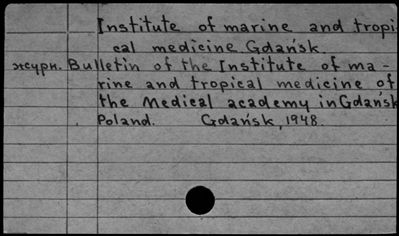 Institute of marine and tropi-
cal medicine. Gdańsk.
журн. Bulletin of the Institute of ma-
rine and tropical medicine of
the Medical academy in Gdańsk
Poland. Gdańsk, 1948.